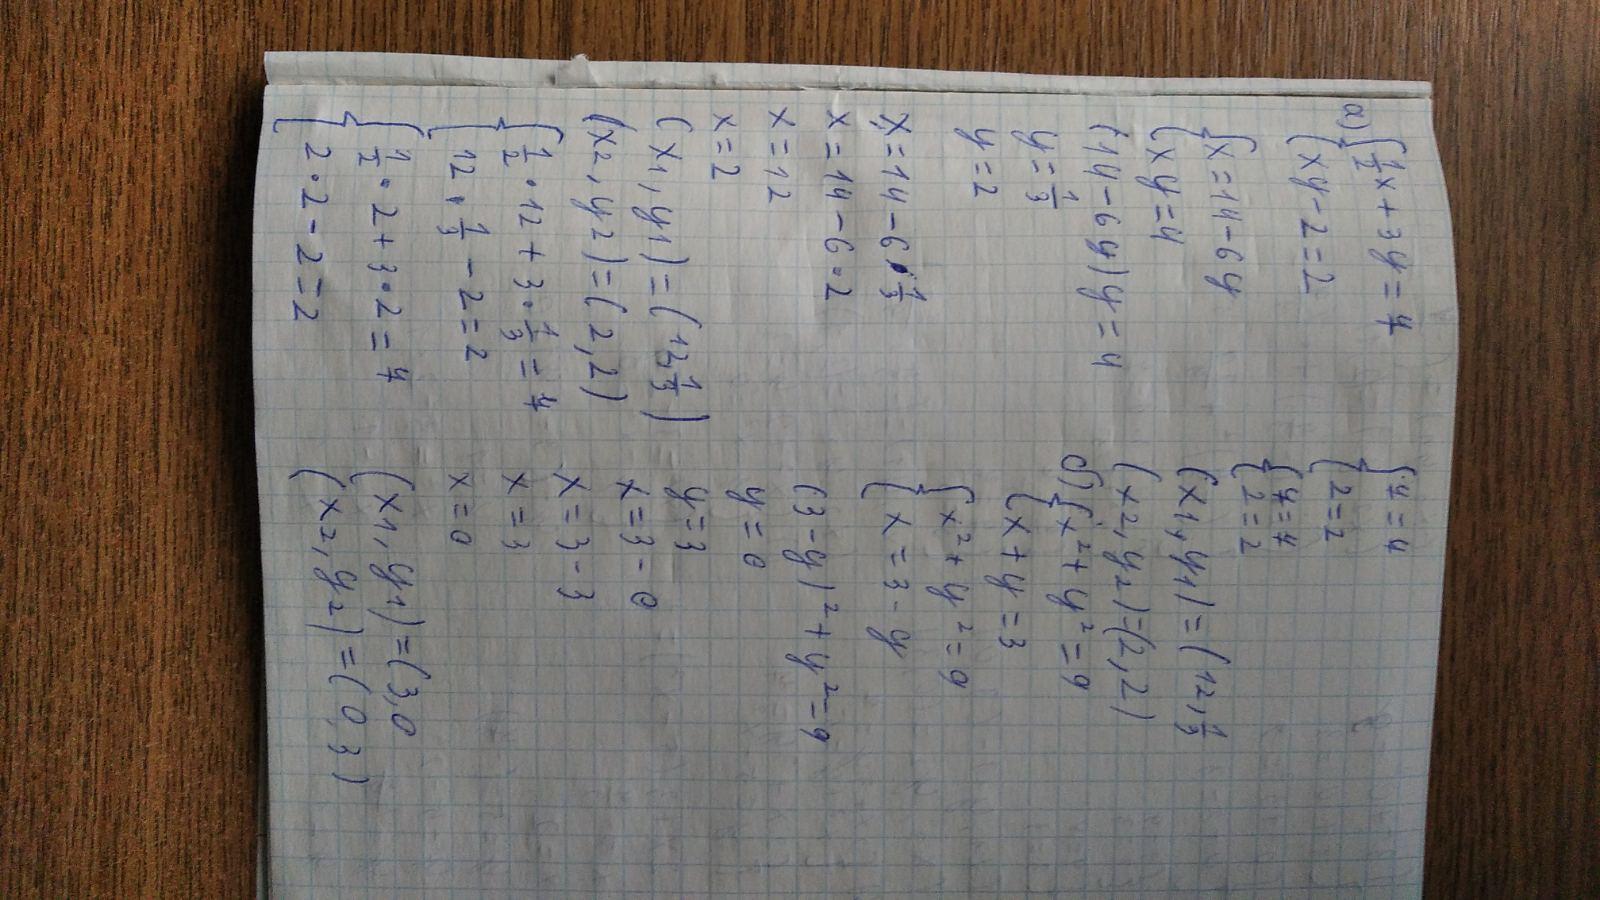 а) { 1/2 x + 3y = 7
{ xy - 2 = 2
{ x = 14 - 6y
{ xy = 4
(14 - 6y)y = 4
y = 1/3
y = 2
x = 14 - 6 · 1/3
x = 14 - 6 · 2
x = 12
x = 2
(x1, y1) = (12, 1/3)
(x2, y2) = (2, 2)
{ 1/2 · 12 + 3 · 1/3 = 7
{ 12 · 1/3 - 2 = 2
{ 1/2 · 2 + 3 · 2 = 7
{ 2 · 2 - 2 = 2
{ 7 = 7
{ 2 = 2
{ 7 = 7
{ 2 = 2
(x1, y1) = (12, 1/3
(x2, y2) = (2, 2)
б) { x² + y² = 9
{ x + y = 3
{ x² + y² = 9
{ x = 3 - y
(3 - y)² + y² = 9
y = 0
y = 3
x = 3 - 0
x = 3 - 3
x = 3
x = 0
(x1, y1) = (3, 0
(x2, y2) = (0, 3)